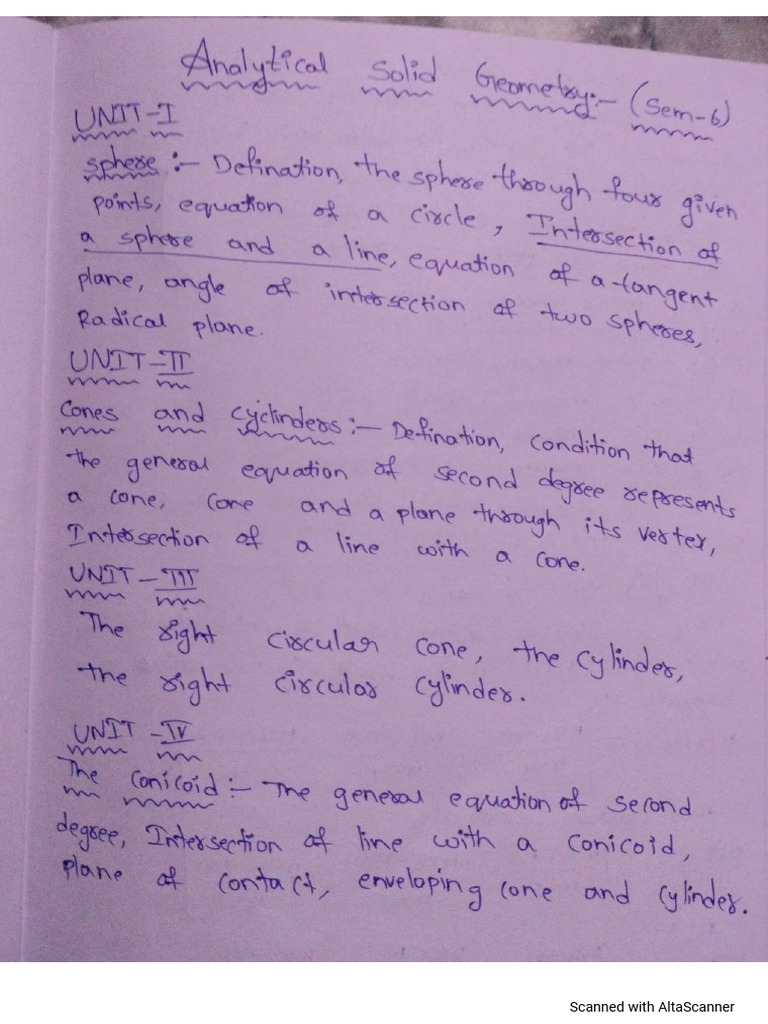 Analytical Solid Geometry:- (Sem-6)
UNIT-I
Sphere:- Defination, the sphere through four given
points, equation of a circle, Intersection of
a sphere and a line, equation of a tangent
plane, angle of intersection of two spheres,
Radical plane.
UNIT-II
Cones and cyclinders:- Defination, condition that
the general equation of second degree represents
a cone, cone and a plane through its vertex,
Intersection of a line with a cone.
UNIT-III
The right circular cone, the cylinder,
the right circular cylinder.
UNIT-IV
The conicoid:- The general equation of second
degree, Intersection of line with a conicoid,
plane of contact, enveloping cone and cylinder.
Scanned with AltaScanner